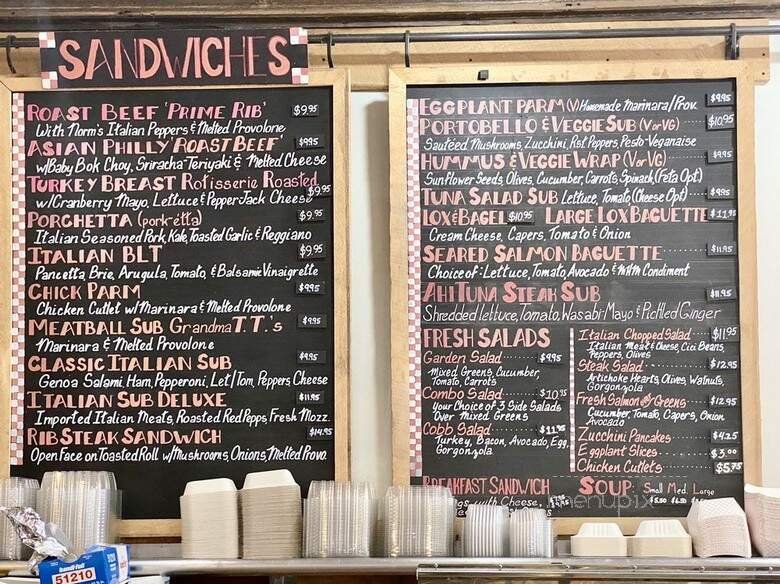 SANDWICHES
ROAST BEEF 'PRIME RIB' $9.95
With Norm's Italian Peppers & Melted Provolone
ASIAN PHILLY 'ROAST BEEF' $9.95
w/Baby Bok Choy, Sriracha-Teriyaki & Melted Cheese
TURKEY BREAST Rotisserie Roasted $9.95
w/Cranberry Mayo, Lettuce & Pepper Jack Cheese
PORGHETTA (pork-étta) $9.95
Italian Seasoned Pork, Kale, Toasted Garlic & Reggiano
ITALIAN BLT $9.95
Pancetta, Brie, Arugula, Tomato, & Balsamic Vinaigrette
CHICK PARM $9.95
Chicken Cutlet w/Marinara & Melted Provolone
MEATBALL SUB Grandma T.T.'s $9.95
Marinara & Melted Provolone
CLASSIC ITALIAN SUB $9.95
Genoa Salami, Ham, Pepperoni, Let/Tom, Peppers, Cheese
ITALIAN SUB DELUXE $11.95
Imported Italian Meats, Roasted Red Pepps, Fresh Mozz.
RIB STEAK SANDWICH $14.95
Open Face on Toasted Roll w/Mushrooms, Onions, Melted Provo.
EGGPLANT PARM (V) Homemade Marinara/Prov. $9.95
PORTOBELLO & VEGGIE SUB (V or VG) $10.95
Sautéed Mushrooms, Zucchini, Rst Peppers, Pesto-Veganaise
HUMMUS & VEGGIE WRAP (V or VG) $9.95
Sunflower Seeds, Olives, Cucumber, Carrots, Spinach (Feta Opt)
TUNA SALAD SUB Lettuce, Tomato (Cheese Opt) $9.95
LOX & BAGEL $10.95 LARGE LOX BAGUETTE $11.95
Cream Cheese, Capers, Tomato & Onion
SEARED SALMON BAGUETTE $11.95
Choice of: Lettuce, Tomato, Avocado & Condiment
AHI TUNA STEAK SUB $11.95
Shredded lettuce, Tomato, Wasabi-Mayo & Pickled Ginger
FRESH SALADS
Garden Salad $9.95
Mixed Greens, Cucumber,
Tomato, Carrots
Combo Salad
Your Choice of 3 Side Salads
Over Mixed Greens
Cobb Salad $11.95
Turkey, Bacon, Avocado, Egg,
Gorgonzola
Italian Chopped Salad $11.95
Italian Meat & Cheese, Cici Beans,
Peppers, Olives
Steak Salad $12.95
Artichoke Hearts, Olives, Walnuts,
Gorgonzola
Fresh Salmon & Greens $12.95
Cucumber, Tomato, Capers, Onion
Avocado
Zucchini Pancakes $4.25
Eggplant Slices $3.00
Chicken Cutlets $5.75
BREAKFAST SANDWICH
with Cheese,
SOUP Small Med. Large
menupix
51210